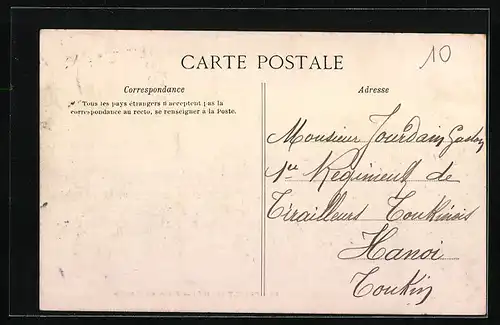 CARTE POSTALE
10
Correspondance
Tous les pays étrangers n'acceptent pas la
correspondance au recto, se renseigner à la Poste.
Adresse
Monsieur Jourdain Gaston
1er Régiment de
Tirailleurs Tonkinois
Hanoi
Tonkin